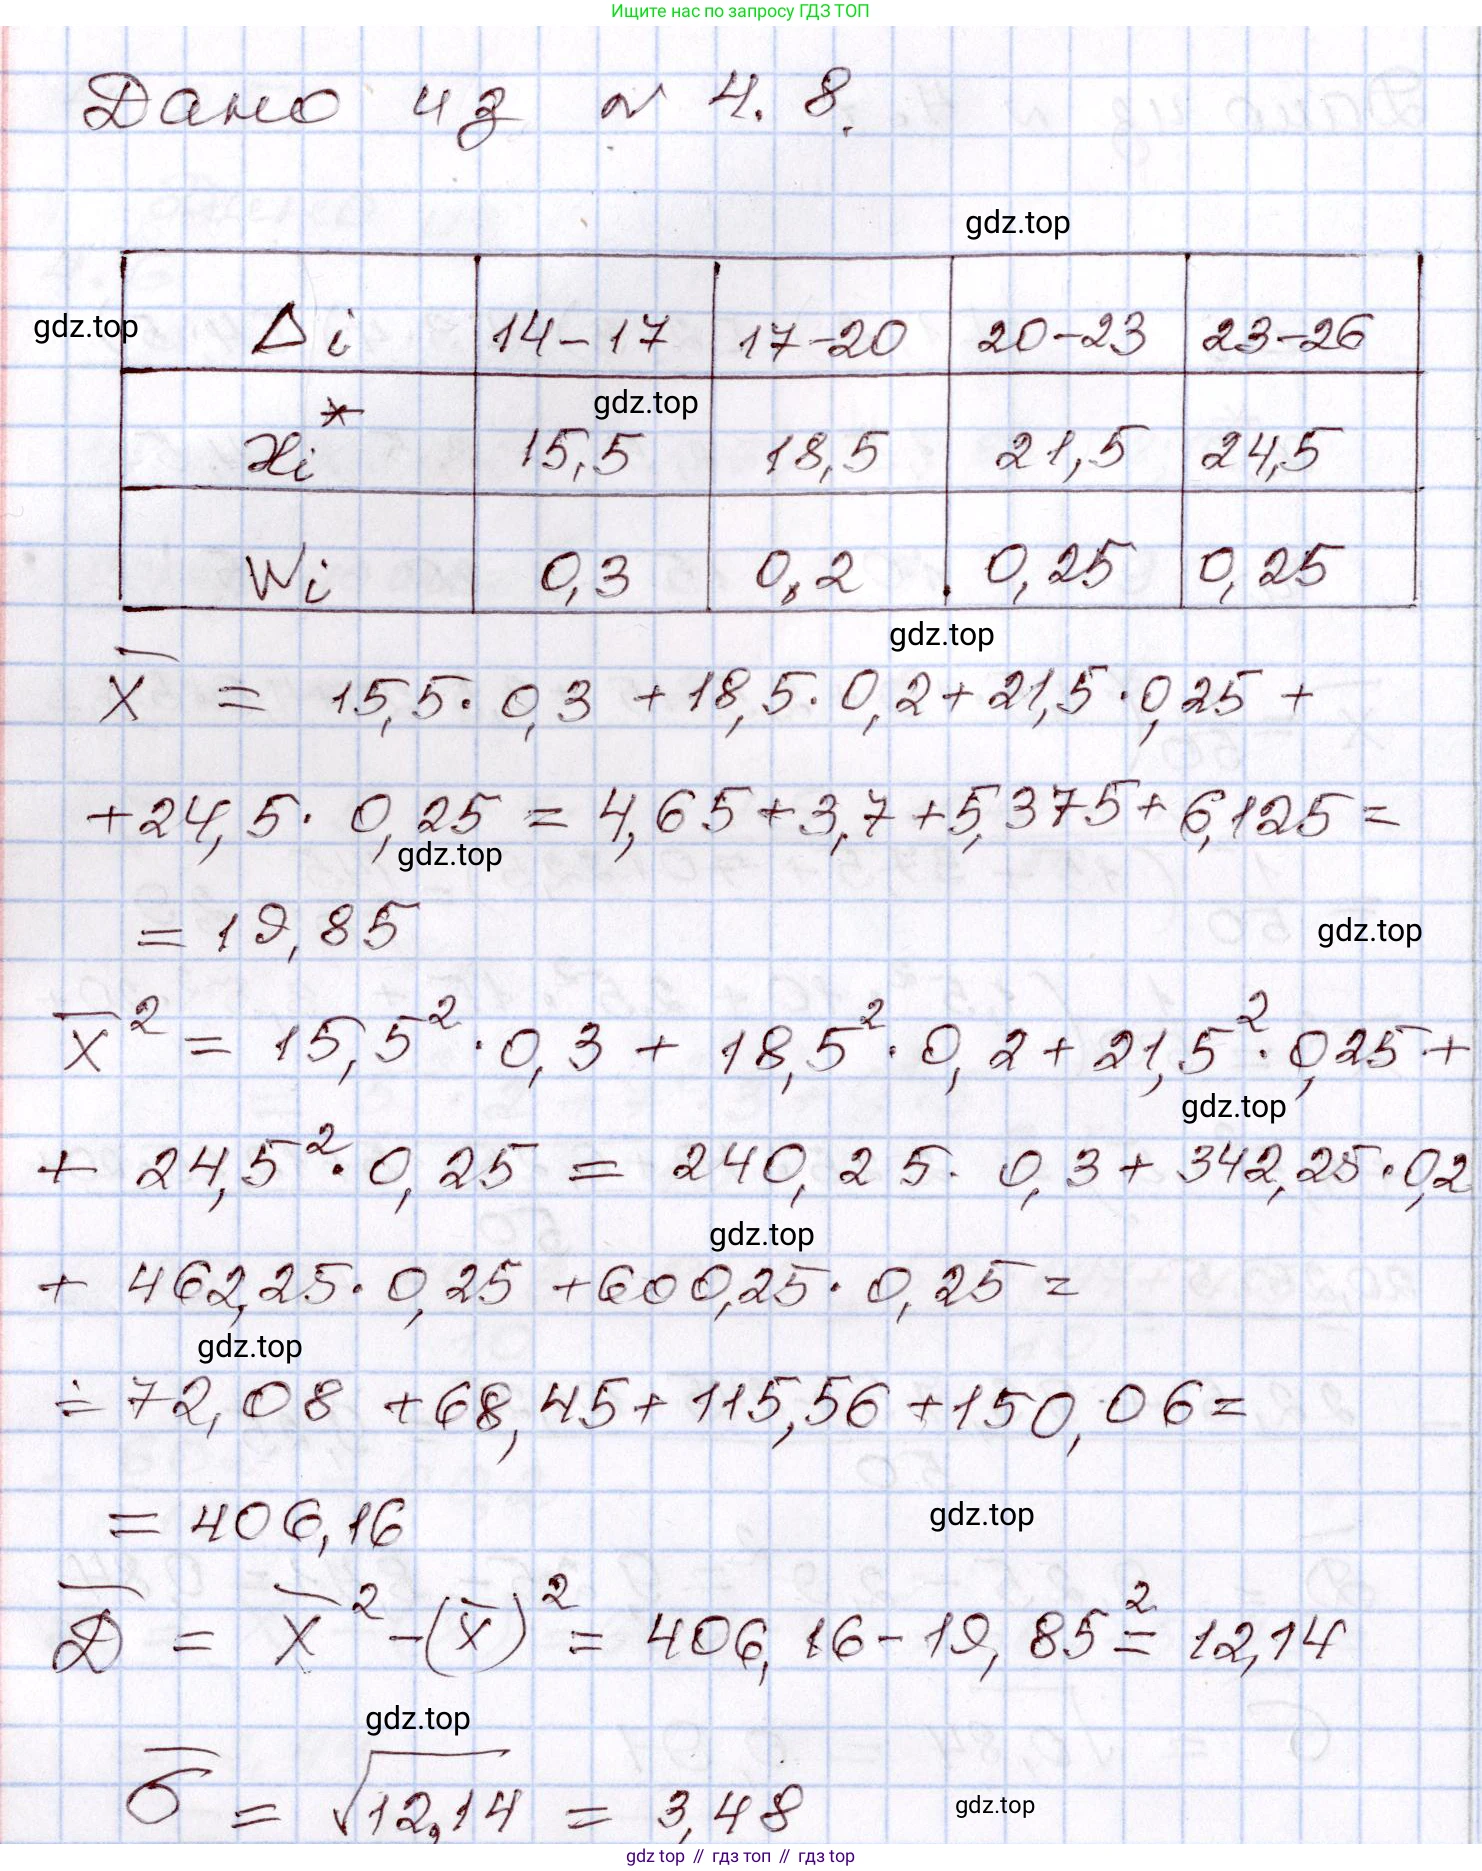 Ищите нас по запросу ГДЗ ТОП
Дано из № 4.8.
gdz.top
gdz.top
Δi 14-17 17-20 20-23 23-26
gdz.top
xi* 15,5 18,5 21,5 24,5
Wi 0,3 0,2 0,25 0,25
gdz.top
x̅ = 15,5·0,3 +18,5·0,2+21,5·0,25 +
+24,5·0,25 = 4,65+3,7+5,375+6,125=
gdz.top
= 19,85
gdz.top
x̅² = 15,5²·0,3 + 18,5²·0,2+21,5²·0,25+
gdz.top
+ 24,5²·0,25 = 240,25·0,3+342,25·0,2
gdz.top
+ 462,25·0,25 +600,25·0,25=
gdz.top
= 72,08 +68,45+115,56+150,06=
= 406,16
gdz.top
D̅ = x̅²-(x̅)² = 406,16-19,85²=12,14
gdz.top
σ̅ = √12,14 = 3,48
gdz.top
gdz top // гдз топ // гдз top